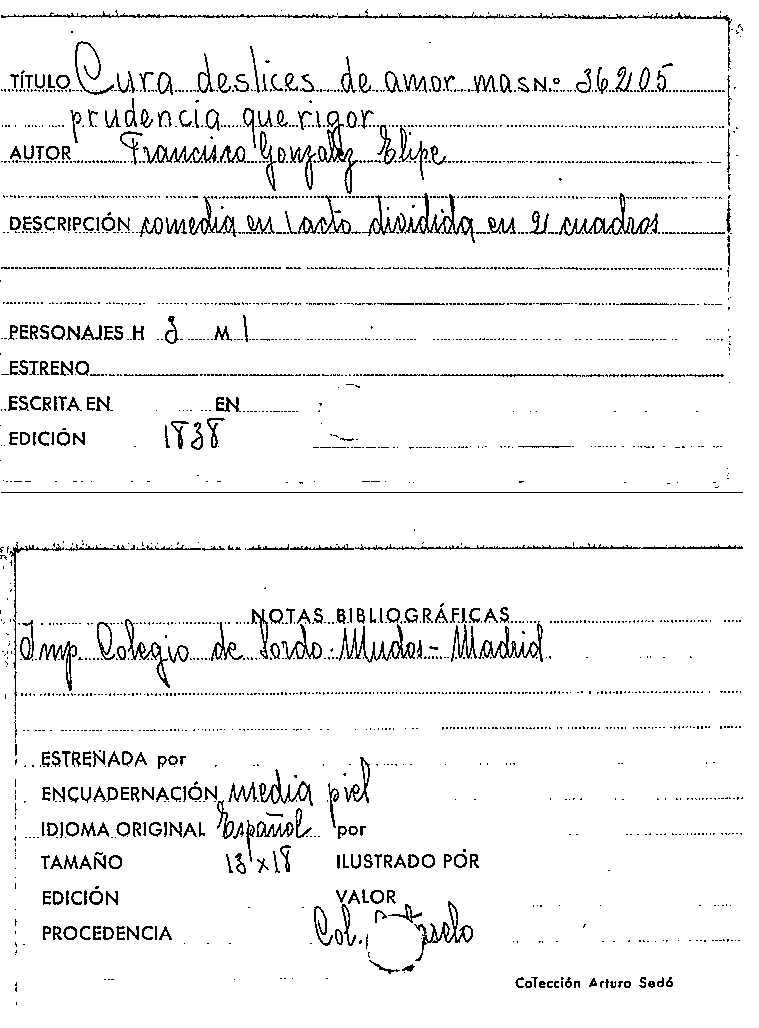 TÍTULO Cura deslices de amor mas Nº 36205
prudencia que rigor
AUTOR Francisco Gonzalez Elipe
DESCRIPCIÓN comedia en 1 acto dividida en 2 cuadros
PERSONAJES H 3 M 1
ESTRENO
ESCRITA EN EN
EDICIÓN 1838
NOTAS BIBLIOGRÁFICAS
Imp. Colegio de Sordo-Mudos - Madrid
ESTREÑADA por
ENCUADERNACIÓN media piel
IDIOMA ORIGINAL Español por
TAMAÑO 13'x18 ILUSTRADO POR
EDICIÓN VALOR
PROCEDENCIA Col.
Colección Arturo Sedó